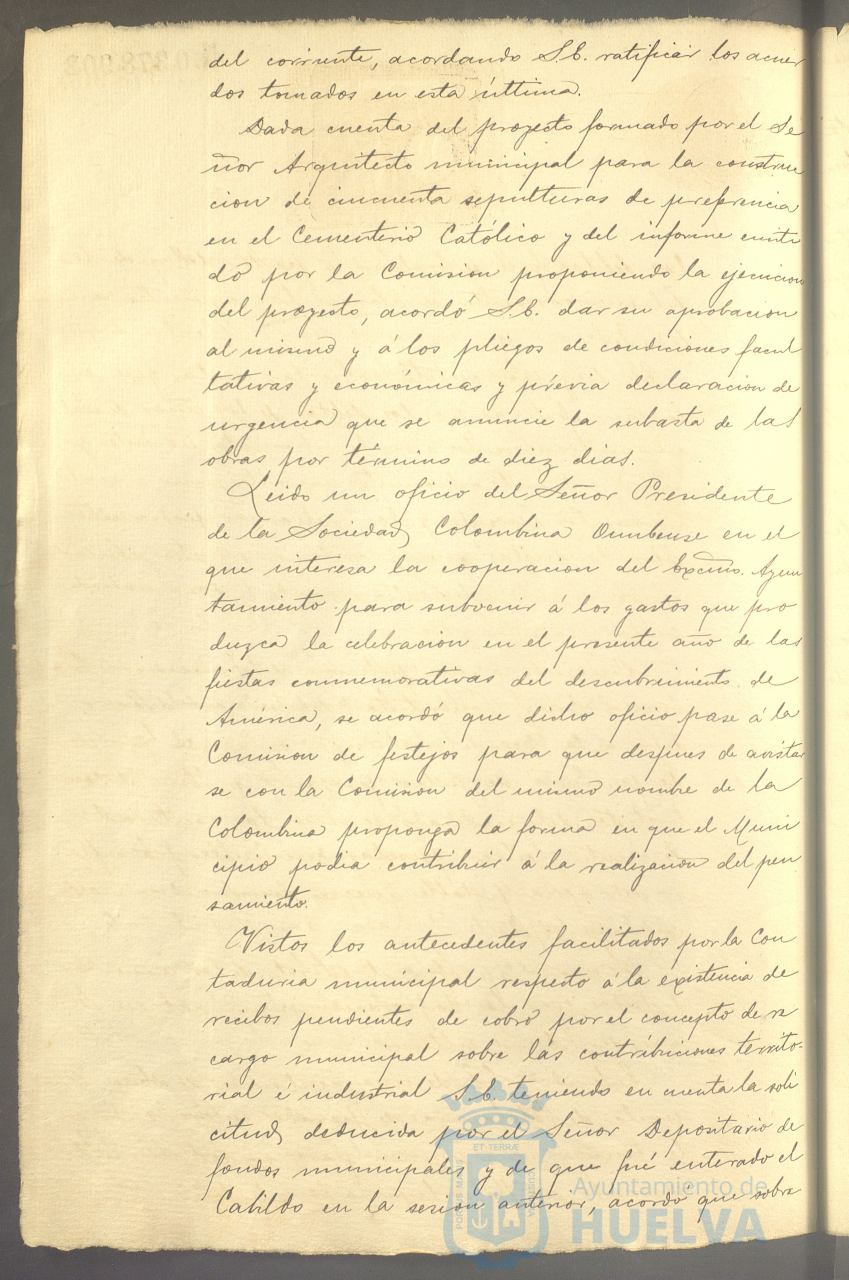 del corriente, acordando S.E. ratificar los acuer
dos tomados en esta última.
Dada cuenta del proyecto formado por el Se
ñor Arquitecto municipal para la construc
cion de cincuenta sepulturas de preferencia
en el Cementerio Católico y del informe emiti
do por la Comision proponiendo la ejecucion
del proyecto, acordó S.E. dar su aprobacion
al mismo y á los pliegos de condiciones facul
tativas y económicas y prévia declaracion de
urgencia que se anuncie la subasta de las
obras por término de diez dias.
Leido un oficio del Señor Presidente
de la Sociedad Colombina Onubense en el
que interesa la cooperacion del Excmo. Ayun
tamiento para subvenir á los gastos que pro
duzca la celebracion en el presente año de las
fiestas conmemorativas del descubrimiento de
América, se acordó que dicho oficio pase á la
Comision de festejos para que despues de avistar
se con la Comision del mismo nombre de la
Colombina proponga la forma en que el Muni
cipio podia contribuir á la realizacion del pen
samiento.
Vistos los antecedentes facilitados por la Con
taduria municipal respecto á la existencia de
recibos pendientes de cobro por el concepto de re
cargo municipal sobre las contribuciones territo-
rial é industrial S.E. teniendo en cuenta la soli
citud deducida por el Señor Depositario de
fondos municipales y de que fué enterado el
Cabildo en la sesion anterior, acordó que sobre
PORTUS MARIS ET TERRÆ CUSTODIA
Ayuntamiento de
HUELVA